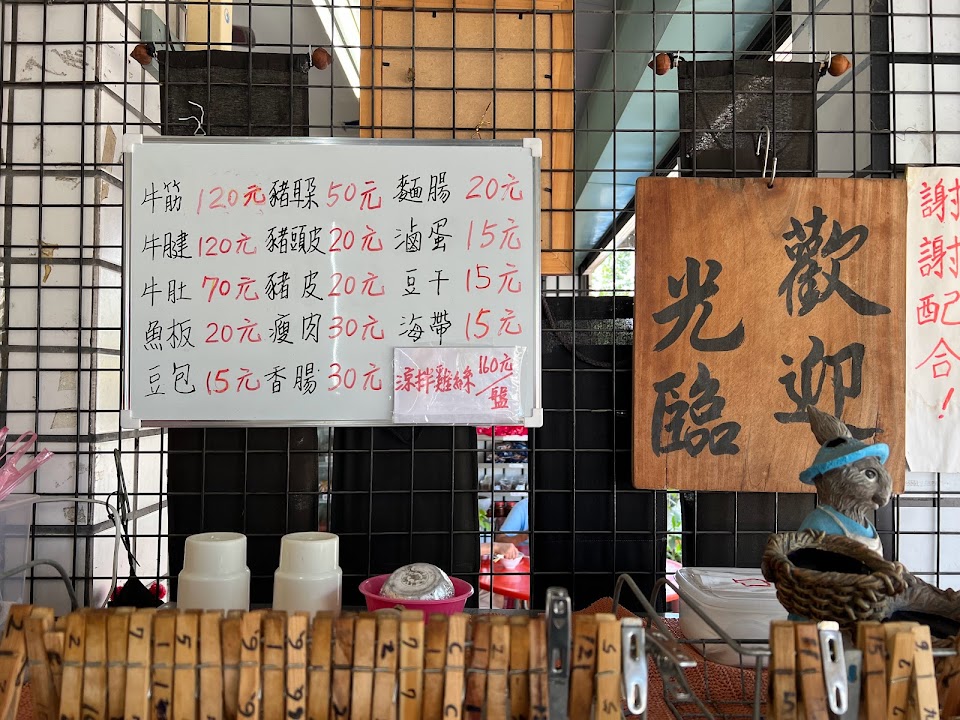 牛筋 120元 豬躲 50元 麵腸 20元
牛腱 120元 豬頭皮 20元 滷蛋 15元
牛肚 70元 豬皮 20元 豆干 15元
魚板 20元 瘦肉 30元 海帶 15元
豆包 15元 香腸 30元
涼拌雞絲 160元/盤
歡迎
光臨
謝謝配合!